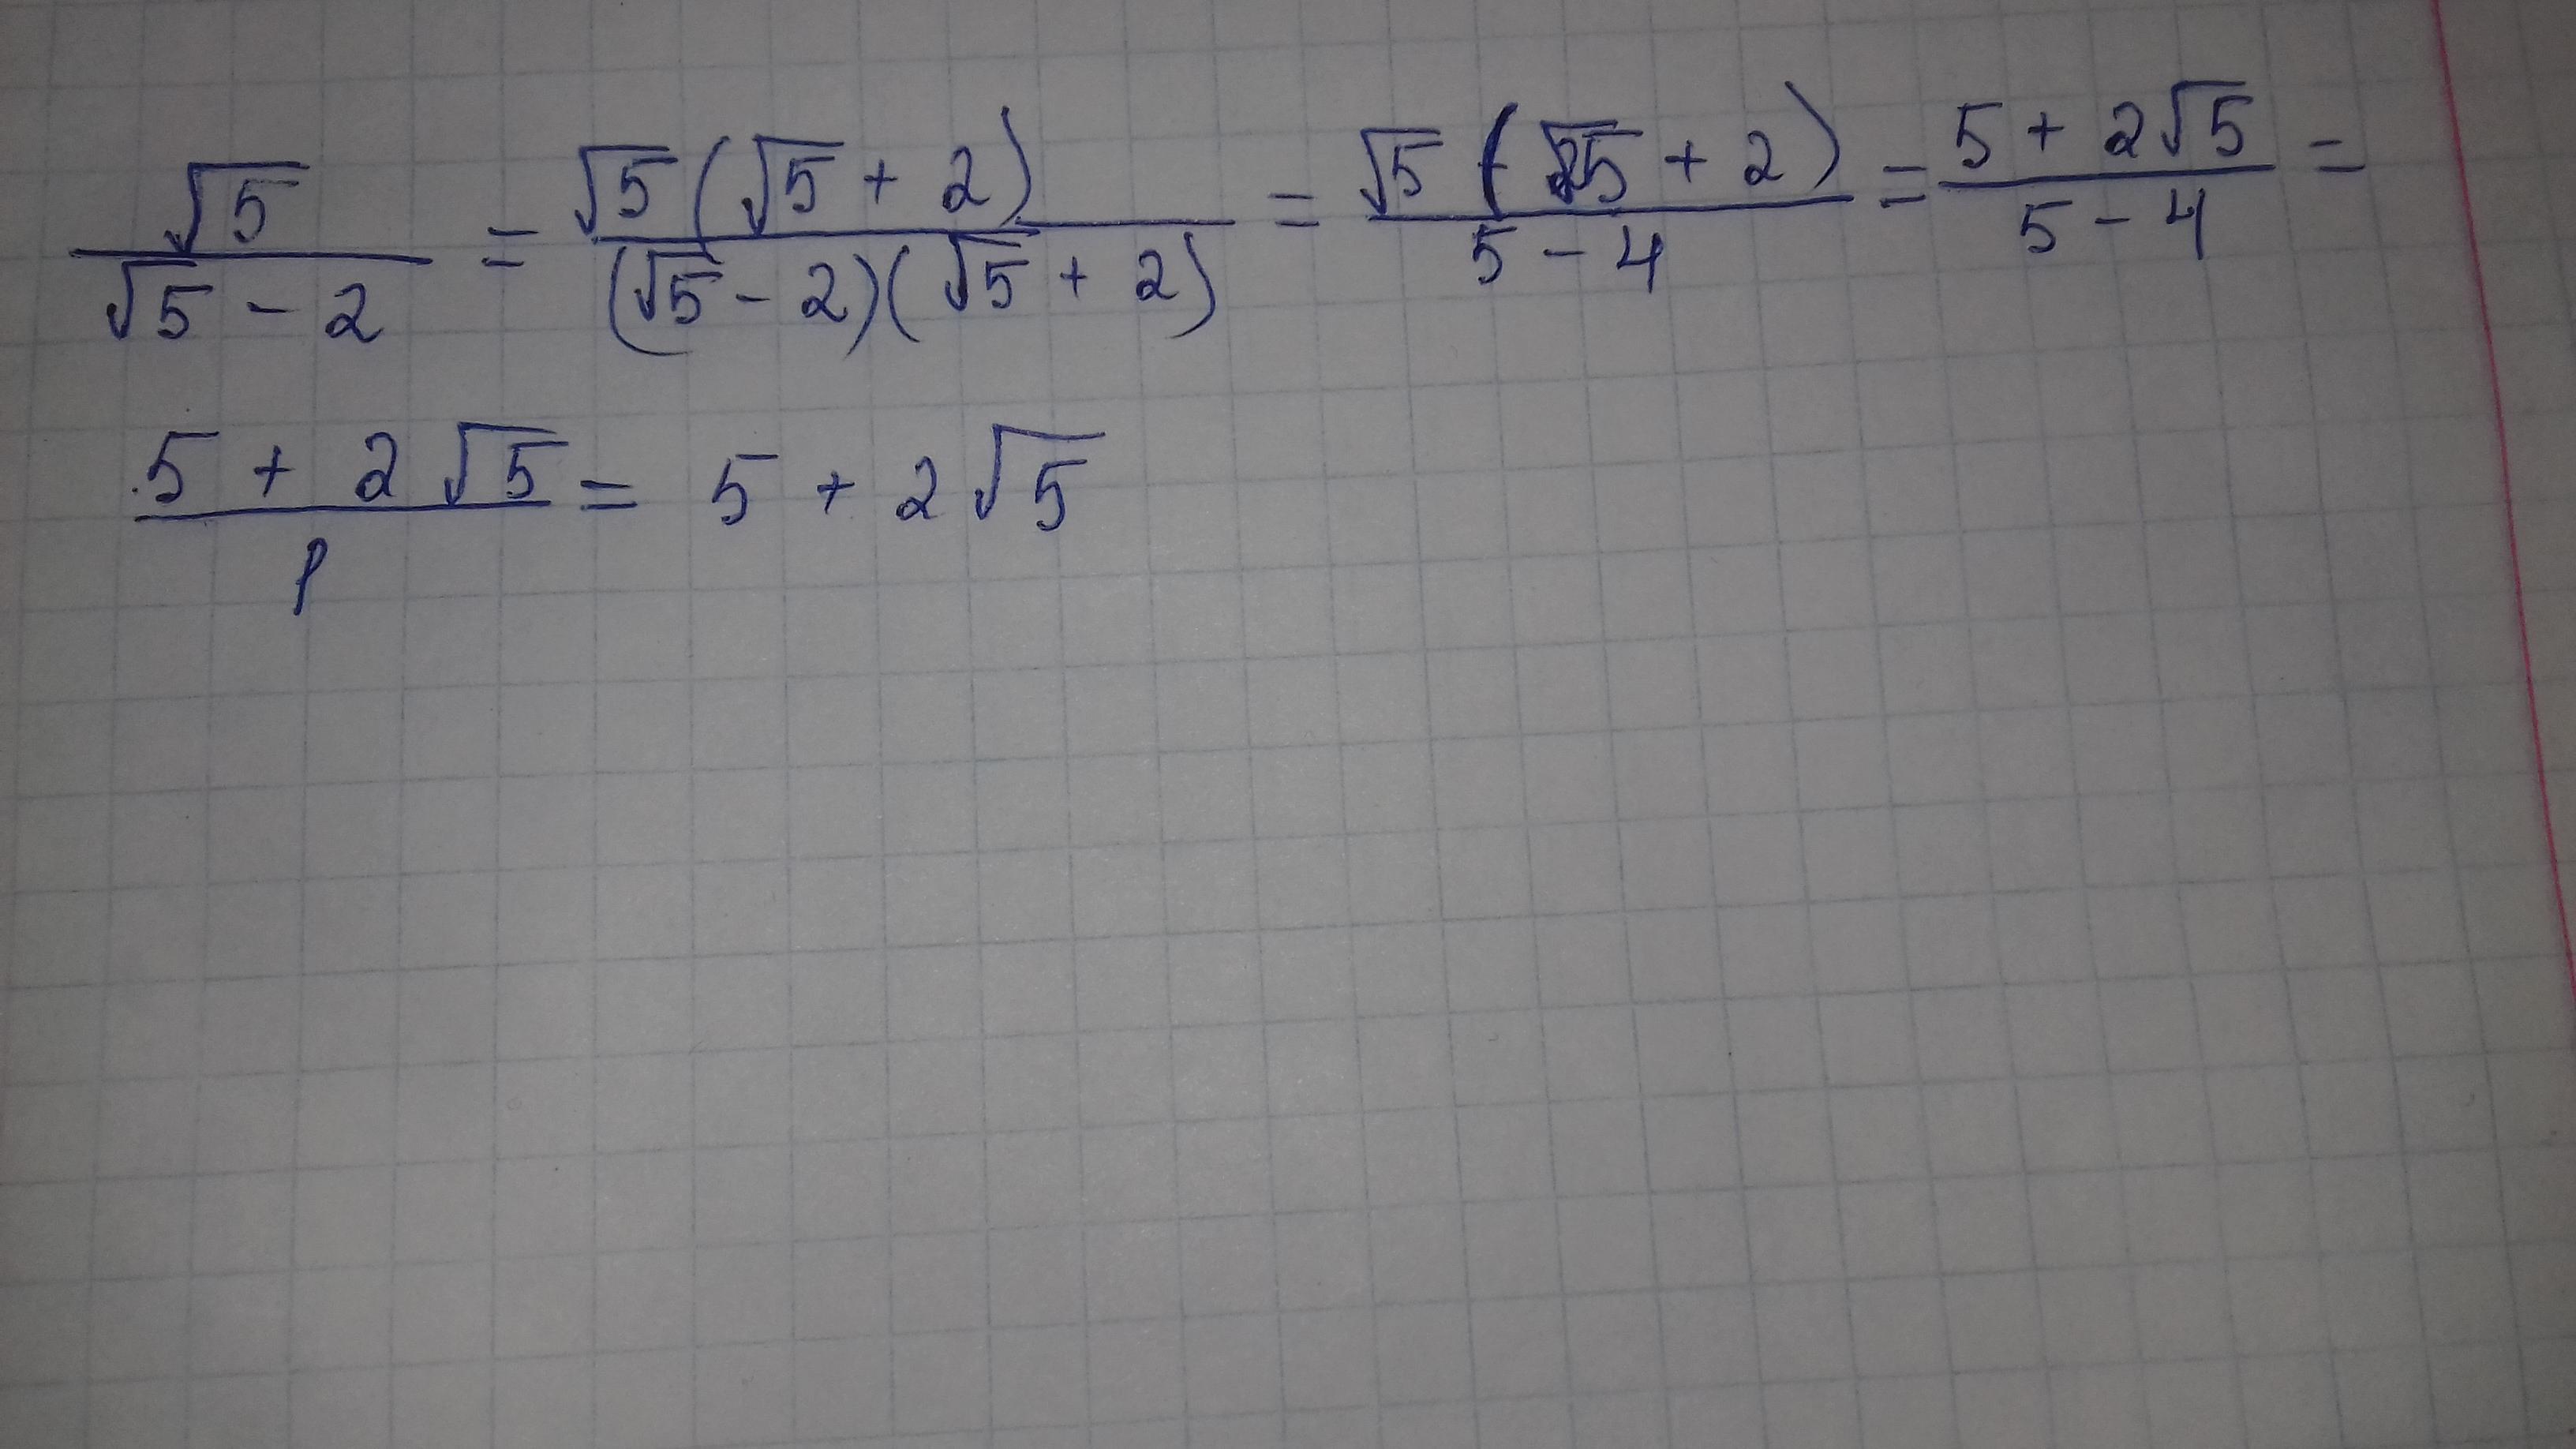 √5/(√5 - 2) = √5(√5 + 2)/((√5 - 2)(√5 + 2)) = √5(√5 + 2)/(5 - 4) = (5 + 2√5)/(5 - 4) =
(5 + 2√5)/1 = 5 + 2√5